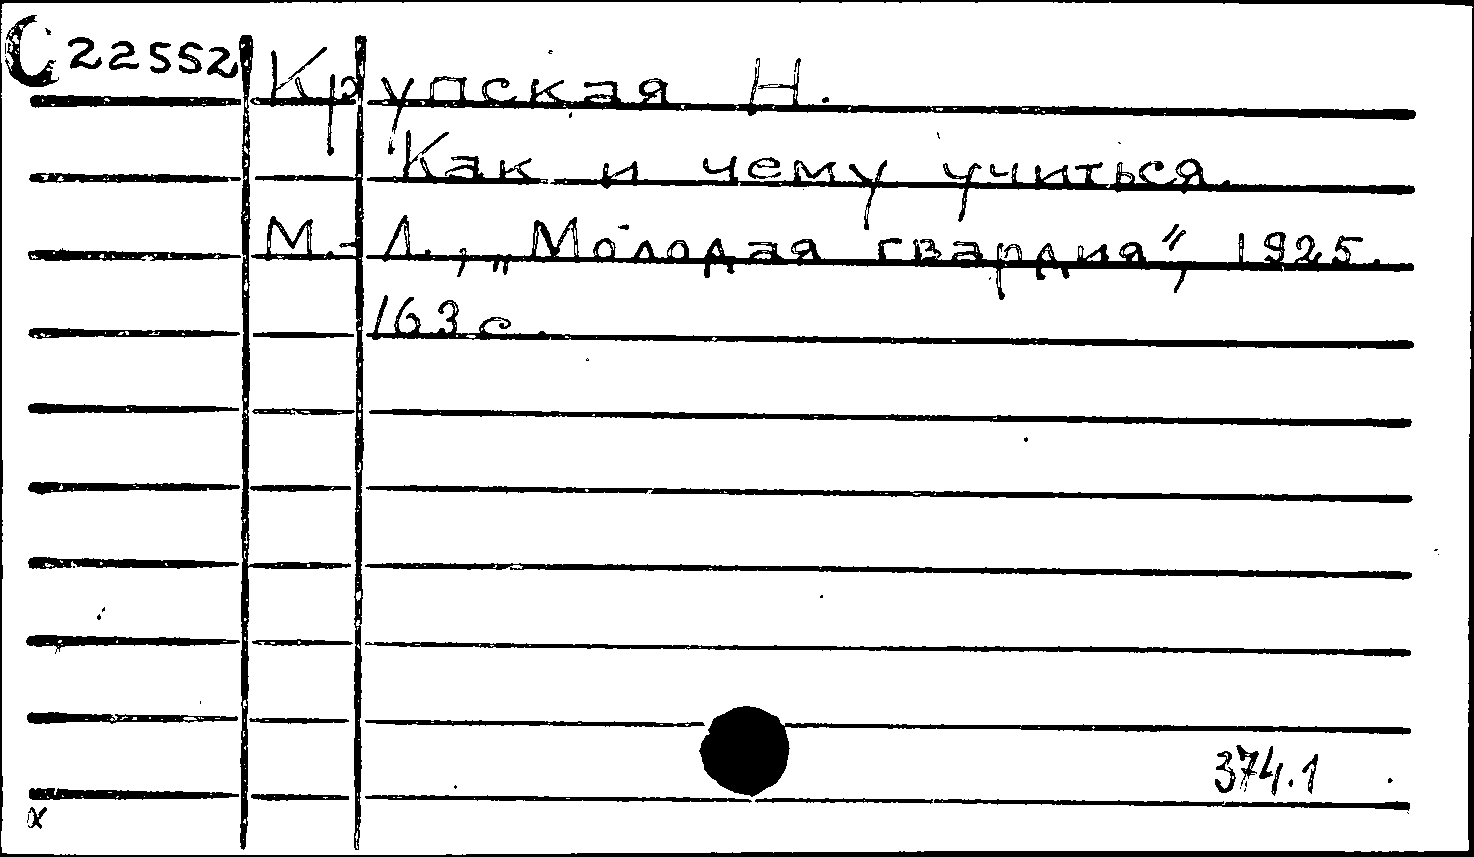 С 22552
Крупская Н.
Как и чему учиться.
М.-Л., „Молодая гвардия", 1925.
163 с.
374.1
x